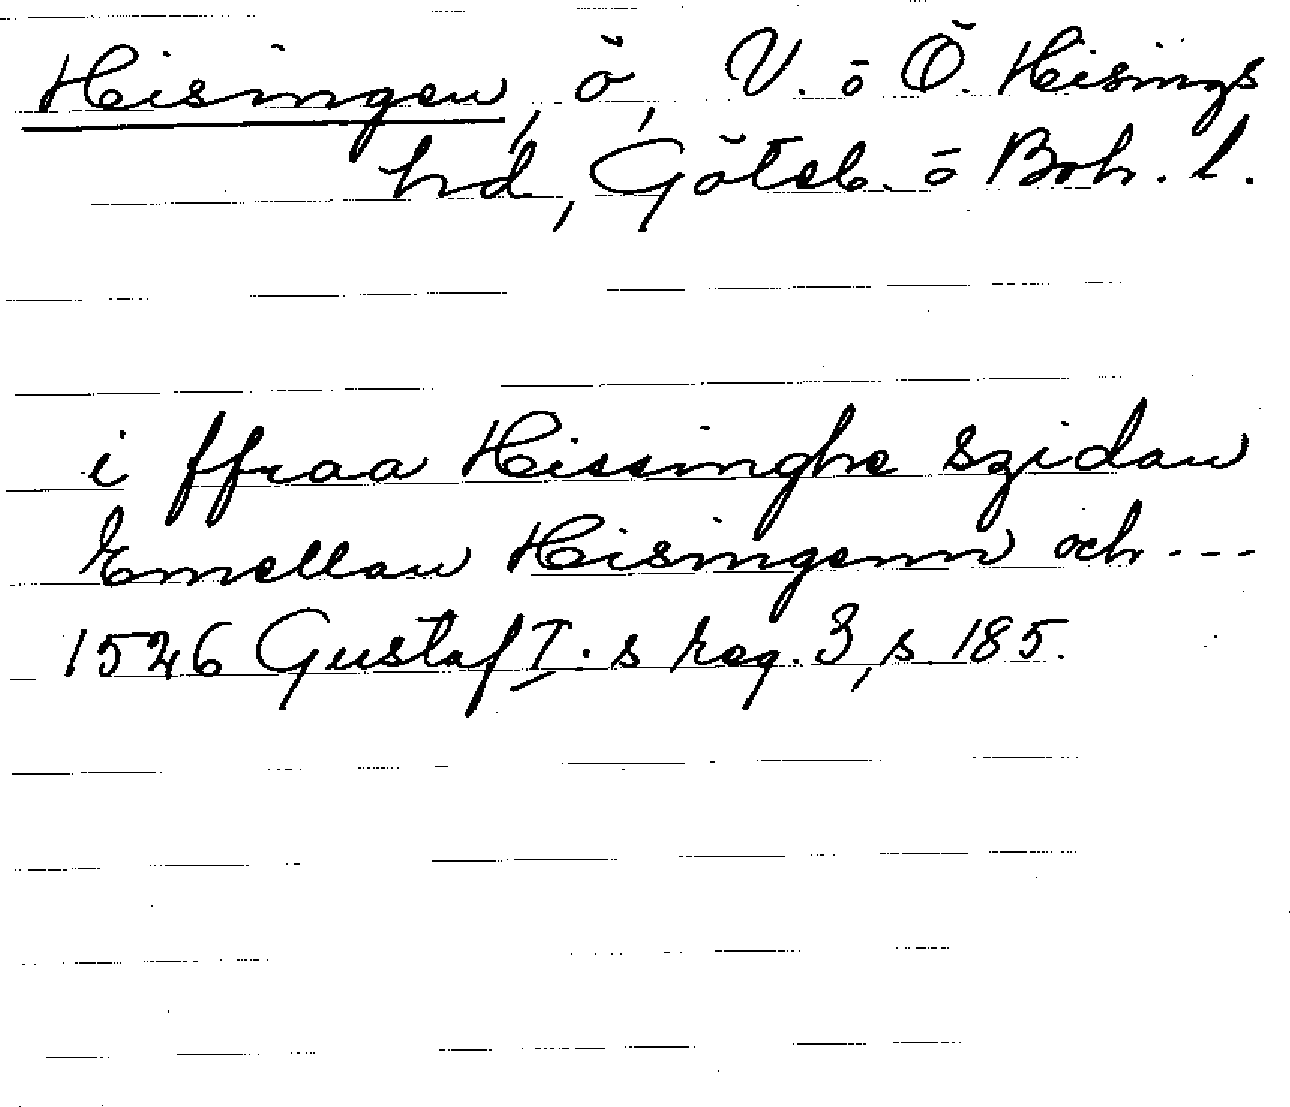 Hisingen, ö, V. o Ö. Hisings
hd, Göteb. o Boh. l.
i ffraa Hissinghe szidan
Emellan Hisingenn och ---
1526 Gustaf I.s reg. 3, s. 185.